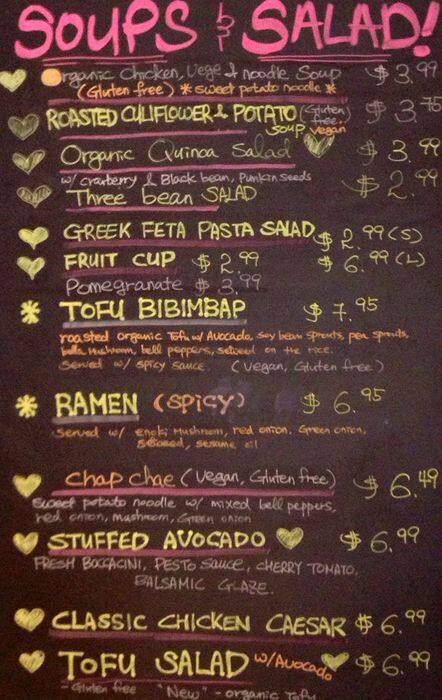 SOUPS & SALAD!
Organic Chicken, Vege & noodle Soup $3.99
(Gluten free) * sweet potato noodle *
ROASTED CULIFLOWER & POTATO (Gluten free, $3.75
SOUP vegan
Organic Quinoa Salad $3.99
w/ cranberry & Black bean, Punkin seeds $2.99
Three bean SALAD
GREEK FETA PASTA SALAD $2.99 (S)
FRUIT CUP $2.99 $6.99 (L)
Pomegranate $3.99
* TOFU BIBIMBAP $7.95
roasted organic Tofu w/ Avocado, soy bean sprouts, pea sprouts,
mushroom, bell peppers, on the rice.
Served w/ spicy sauce. (Vegan, Gluten free)
* RAMEN (SPICY) $6.95
Served w/ enoki Mushroom, red onion, Green onion,
seaweed, sesame oil
Chap chae (Vegan, Gluten free) $6.49
sweet potato noodle w/ mixed bell peppers,
red onion, mushroom, Green onion
STUFFED AVOCADO $6.99
FRESH BOCCACINI, PESTO SAUCE, CHERRY TOMATO,
BALSAMIC GLAZE.
CLASSIC CHICKEN CAESAR $6.99
TOFU SALAD w/ Avocado $6.99
- Gluten free "New" - organic Tofu